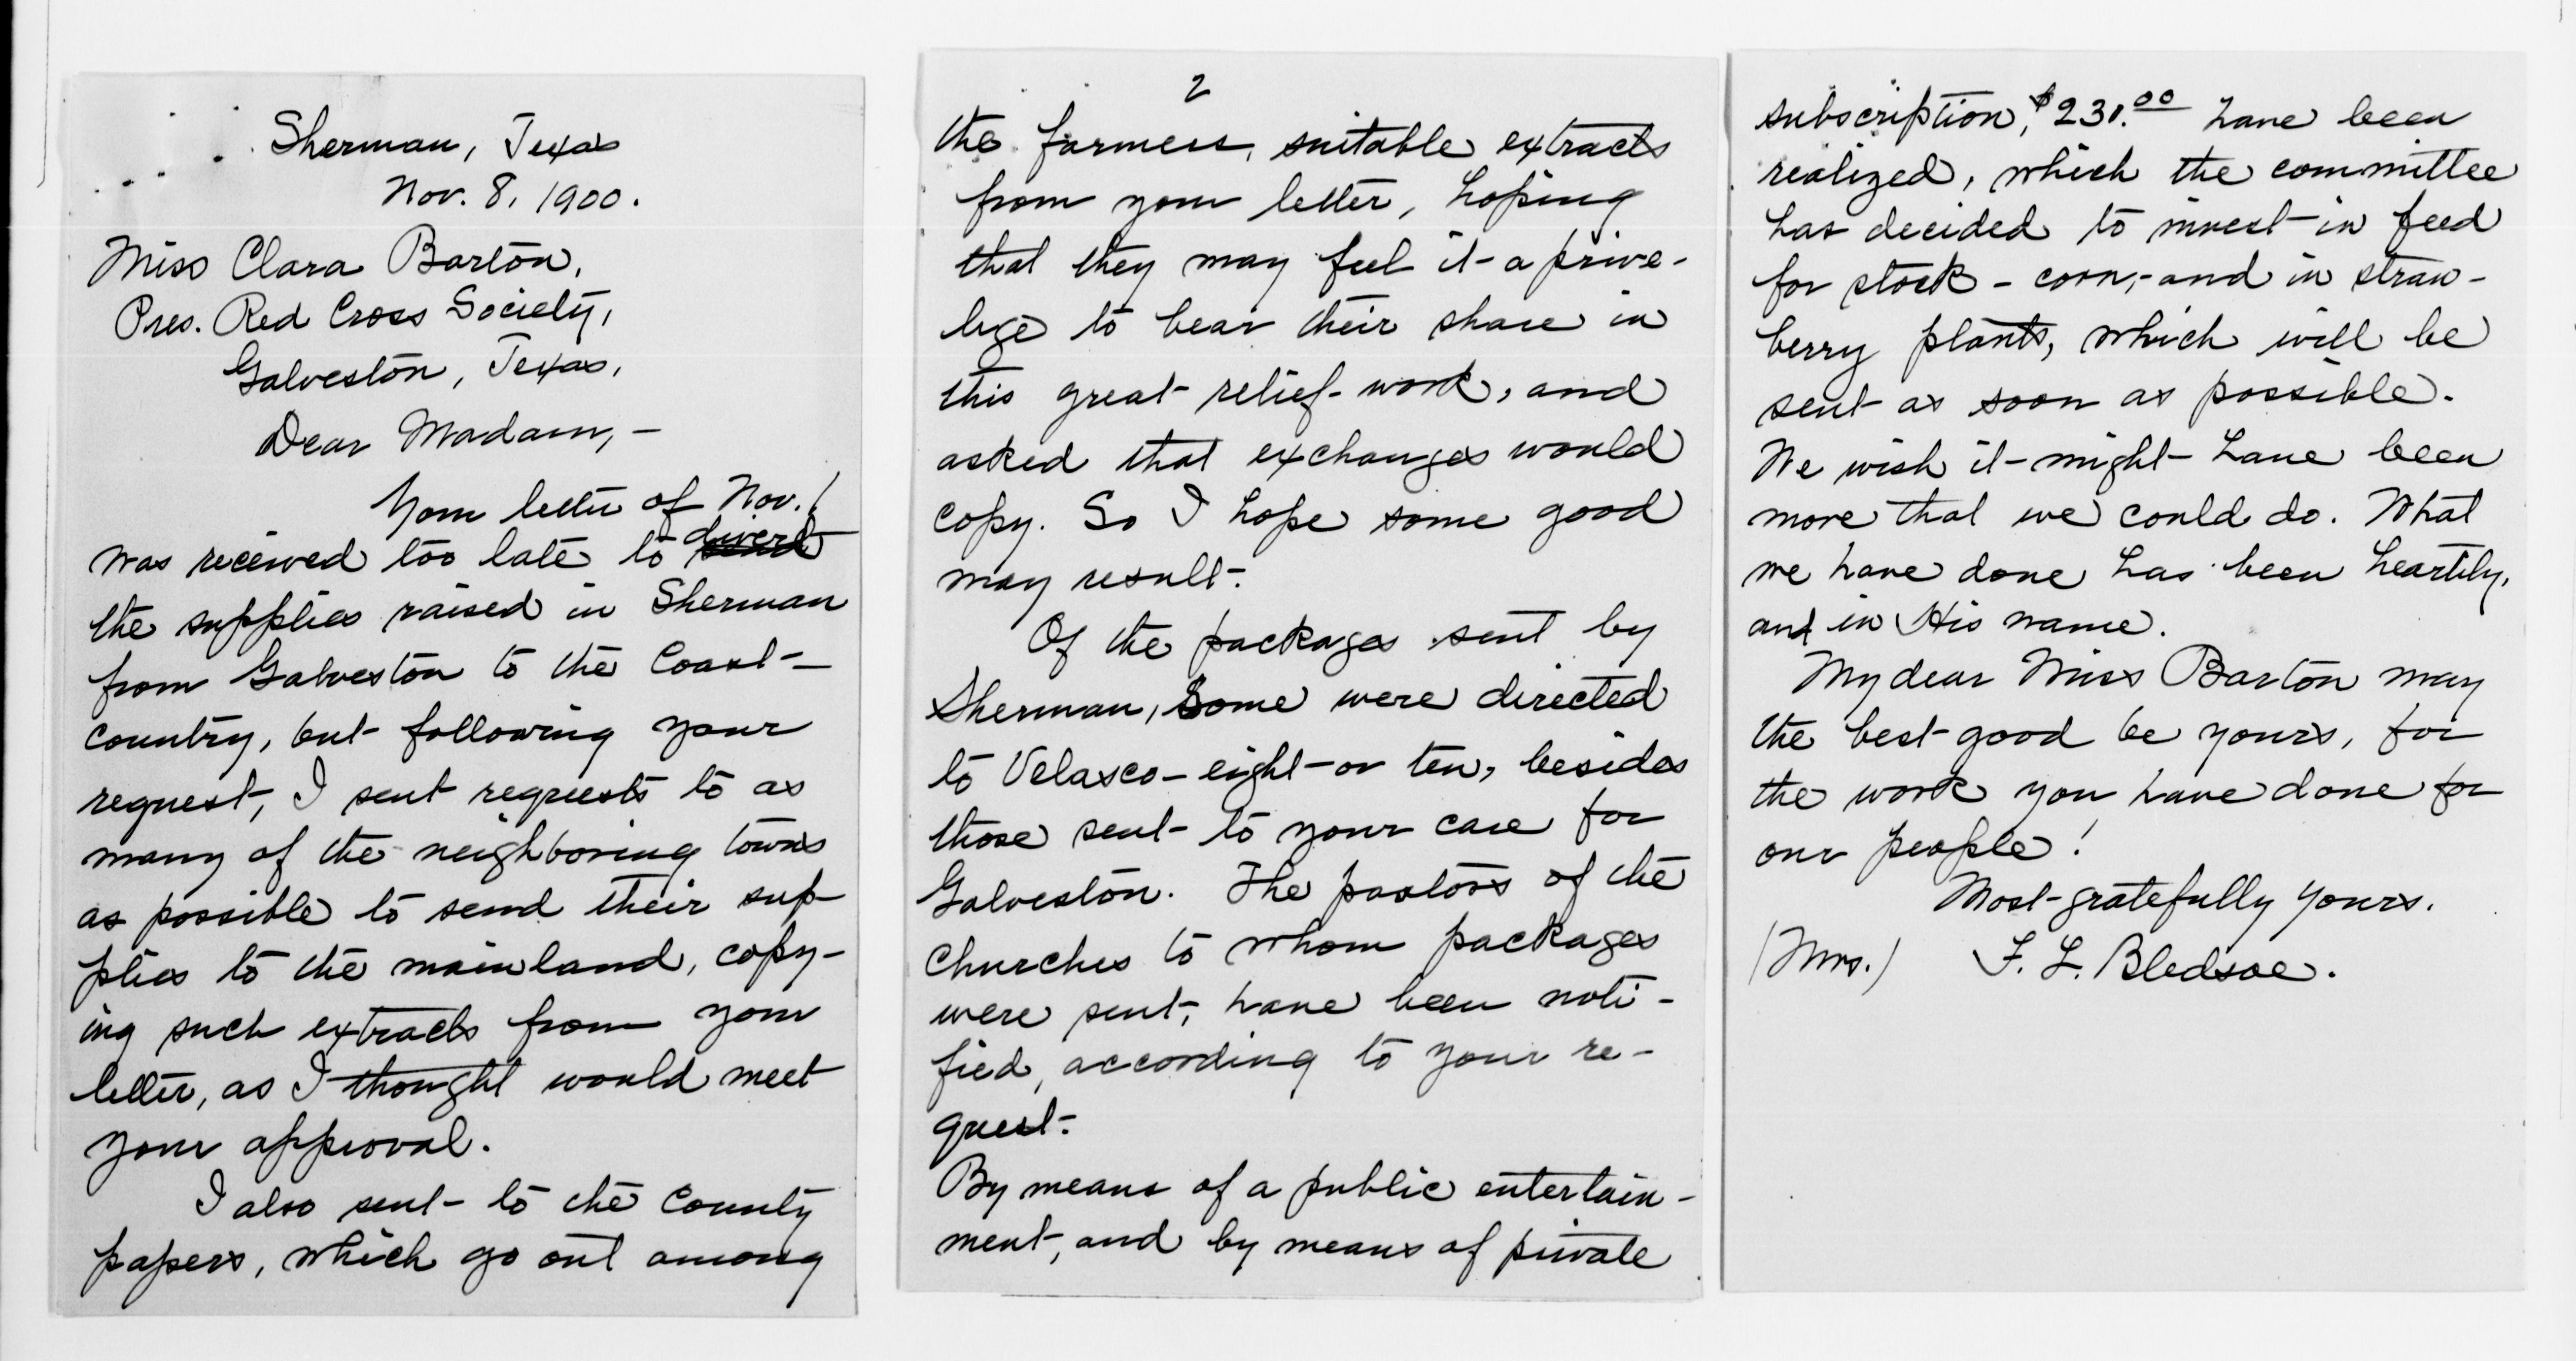 Sherman, Texas
Nov. 8, 1900.
Miss Clara Barton,
Pres. Red Cross Society,
Galveston, Texas,
Dear Madam, —
Your letter of Nov. 1
was received too late to divert
the supplies raised in Sherman
from Galveston to the Coast-
country, but following your
request, I sent requests to as
many of the neighboring towns
as possible to send their sup-
plies to the mainland, copy-
ing such extracts from your
letter, as I thought would meet
your approval.
I also sent to the County
papers, which go out among
2
the farmers, suitable extracts
from your letter, hoping
that they may feel it a prive-
lege to bear their share in
this great relief-work, and
asked that exchanges would
copy. So I hope some good
may result.
Of the packages sent by
Sherman, some were directed
to Velasco — eight or ten, besides
those sent to your care for
Galveston. The pastors of the
Churches to whom packages
were sent, have been noti-
fied, according to your re-
quest.
By means of a public entertain-
ment, and by means of private
subscription, $231.00 have been
realized, which the committee
has decided to invest in feed
for stock - corn, - and in straw-
berry plants, which will be
sent as soon as possible.
We wish it might have been
more that we could do. What
we have done has been heartily,
and in His name.
My dear Miss Barton may
the best good be yours, for
the work you have done for
our people!
Most gratefully yours.
(Mrs.) F. L. Bledsoe.